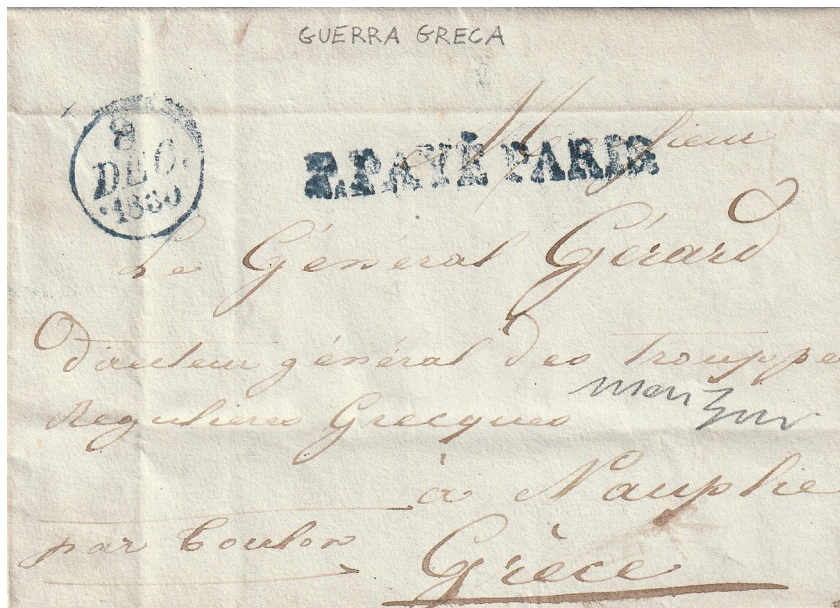 GUERRA GRECA
8
DEC.
1830
P.PAYÉ PARIS
Monsieur
Le Général Gérard
Directeur général des trouppe
Regulieres Grecques
à Nauplie
par Toulon
Grèce